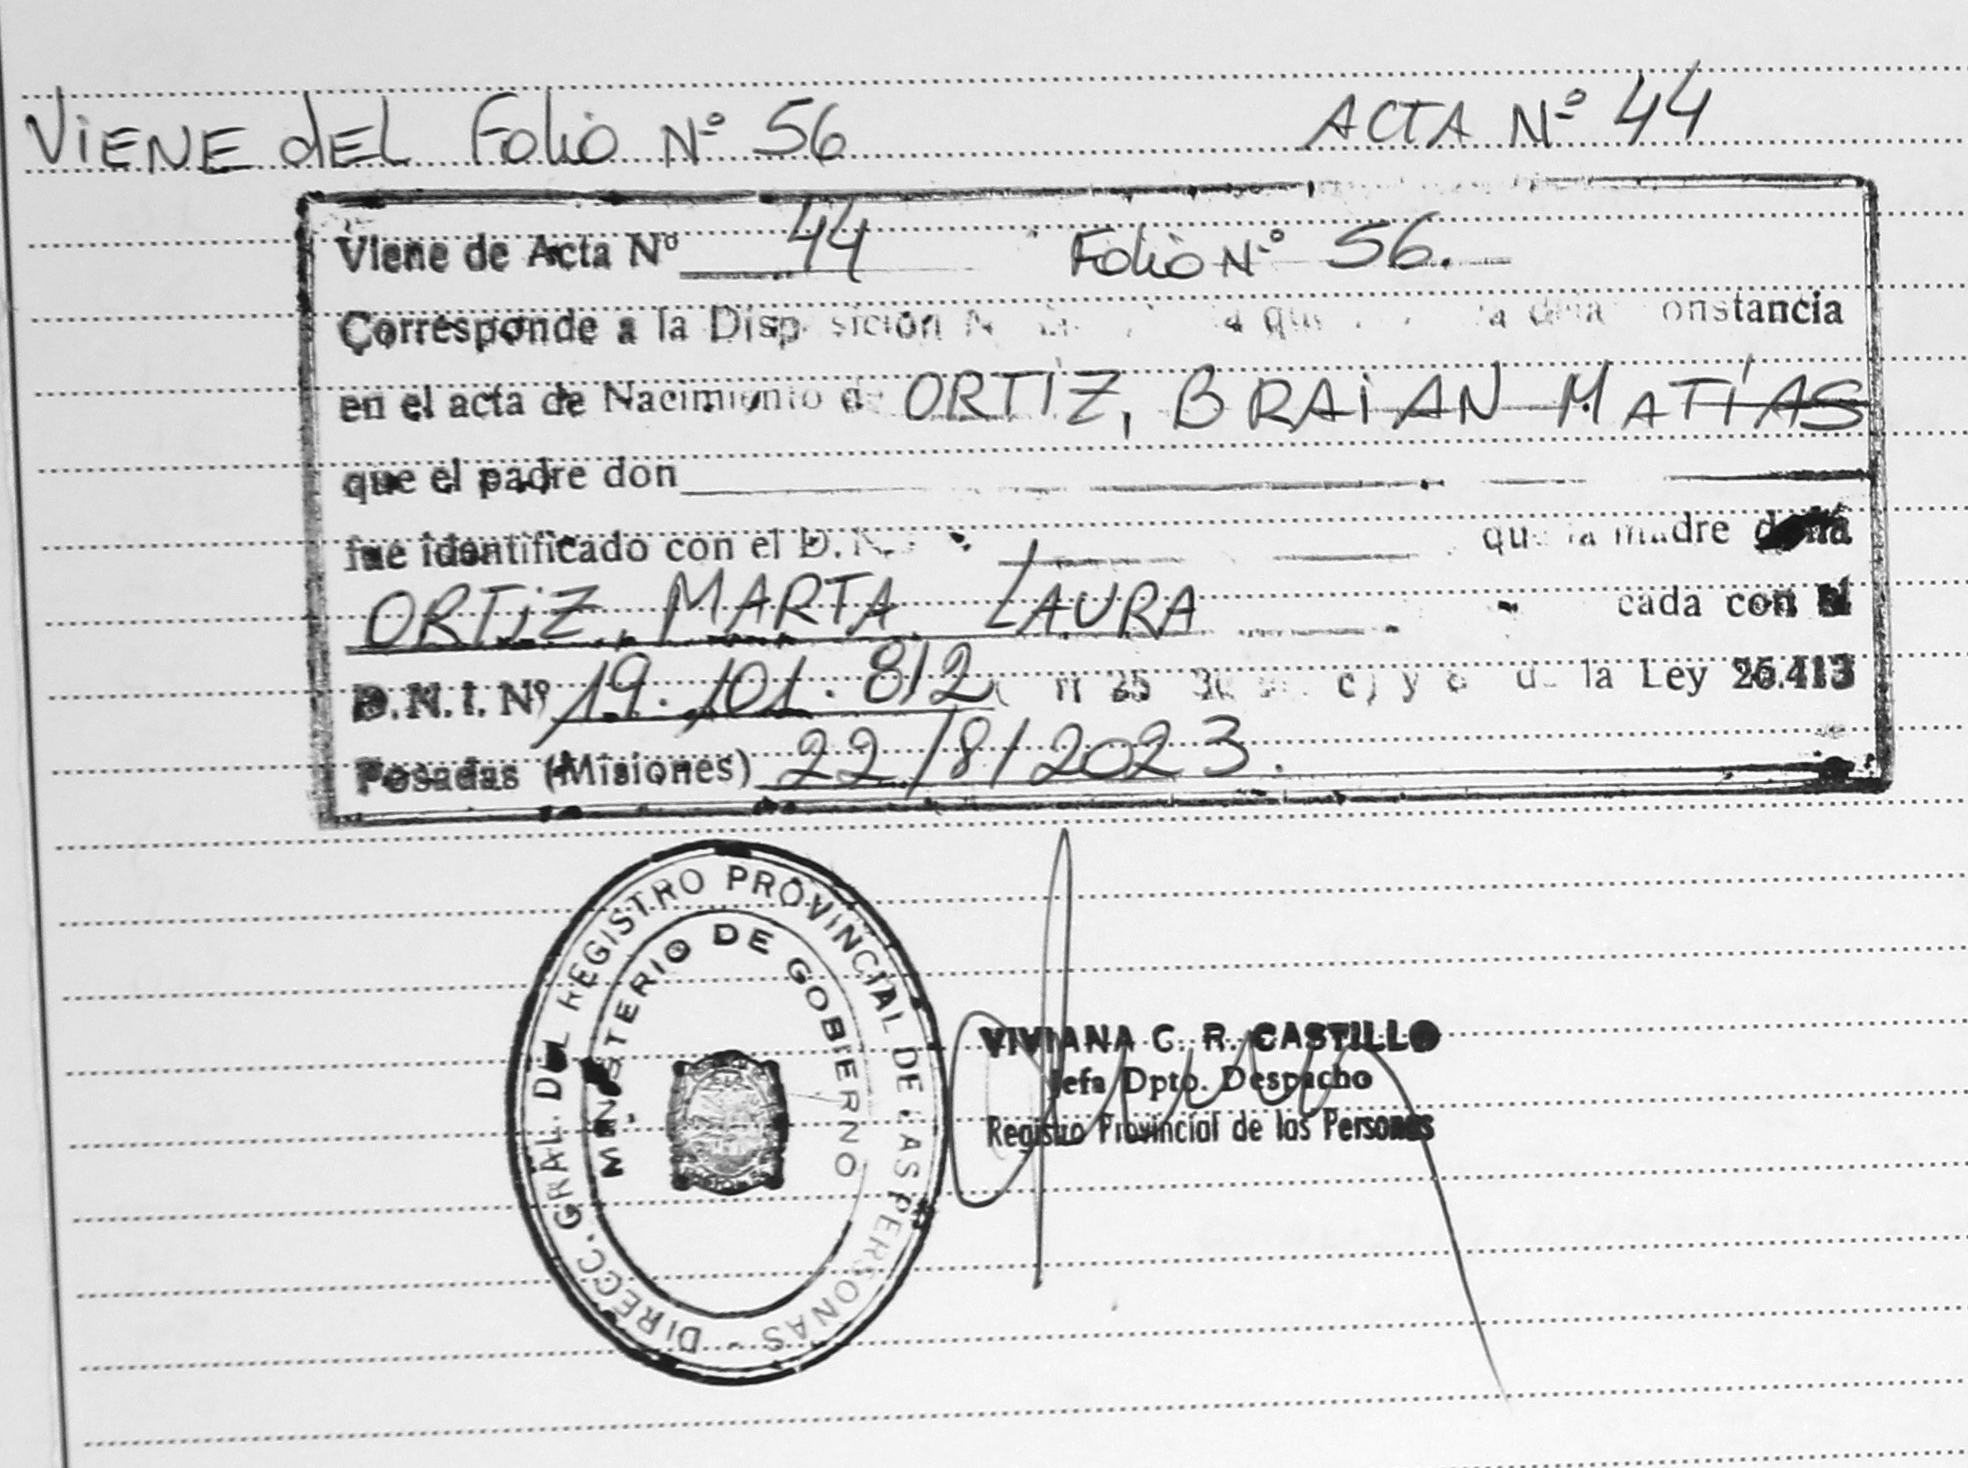 VIENE dEL Folio Nº 56 ACTA Nº 44
Viene de Acta Nº 44 Folio Nº 56.
Corresponde a la Disposición constancia
en el acta de Nacimiento de ORTIZ, BRAIAN MATÍAS
que el padre don
fue identificado con el D.N. que la madre doña
ORTIZ, MARTA LAURA con el
D.N.I. Nº 19.101.812 c) y de la Ley 26.413
Posadas (Misiones) 22/8/2023.
DIRECC. GRAL. DEL REGISTRO PROVINCIAL DE LAS PERSONAS -
MINISTERIO DE GOBIERNO
VIVIANA C. R. CASTILLO
Jefa Dpto. Despacho
Registro Provincial de las Personas